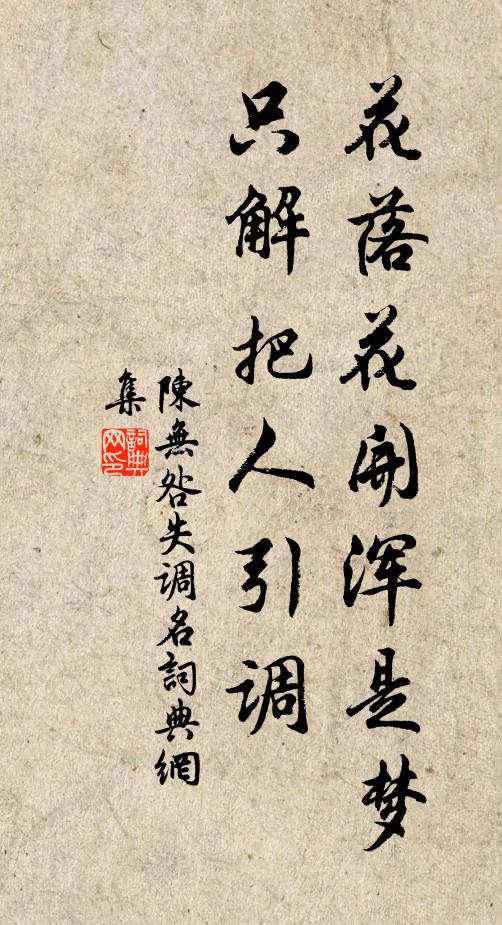 花落花开浑是梦
只解把人引调
陳無咎失调名詞典網
集
詞典网印